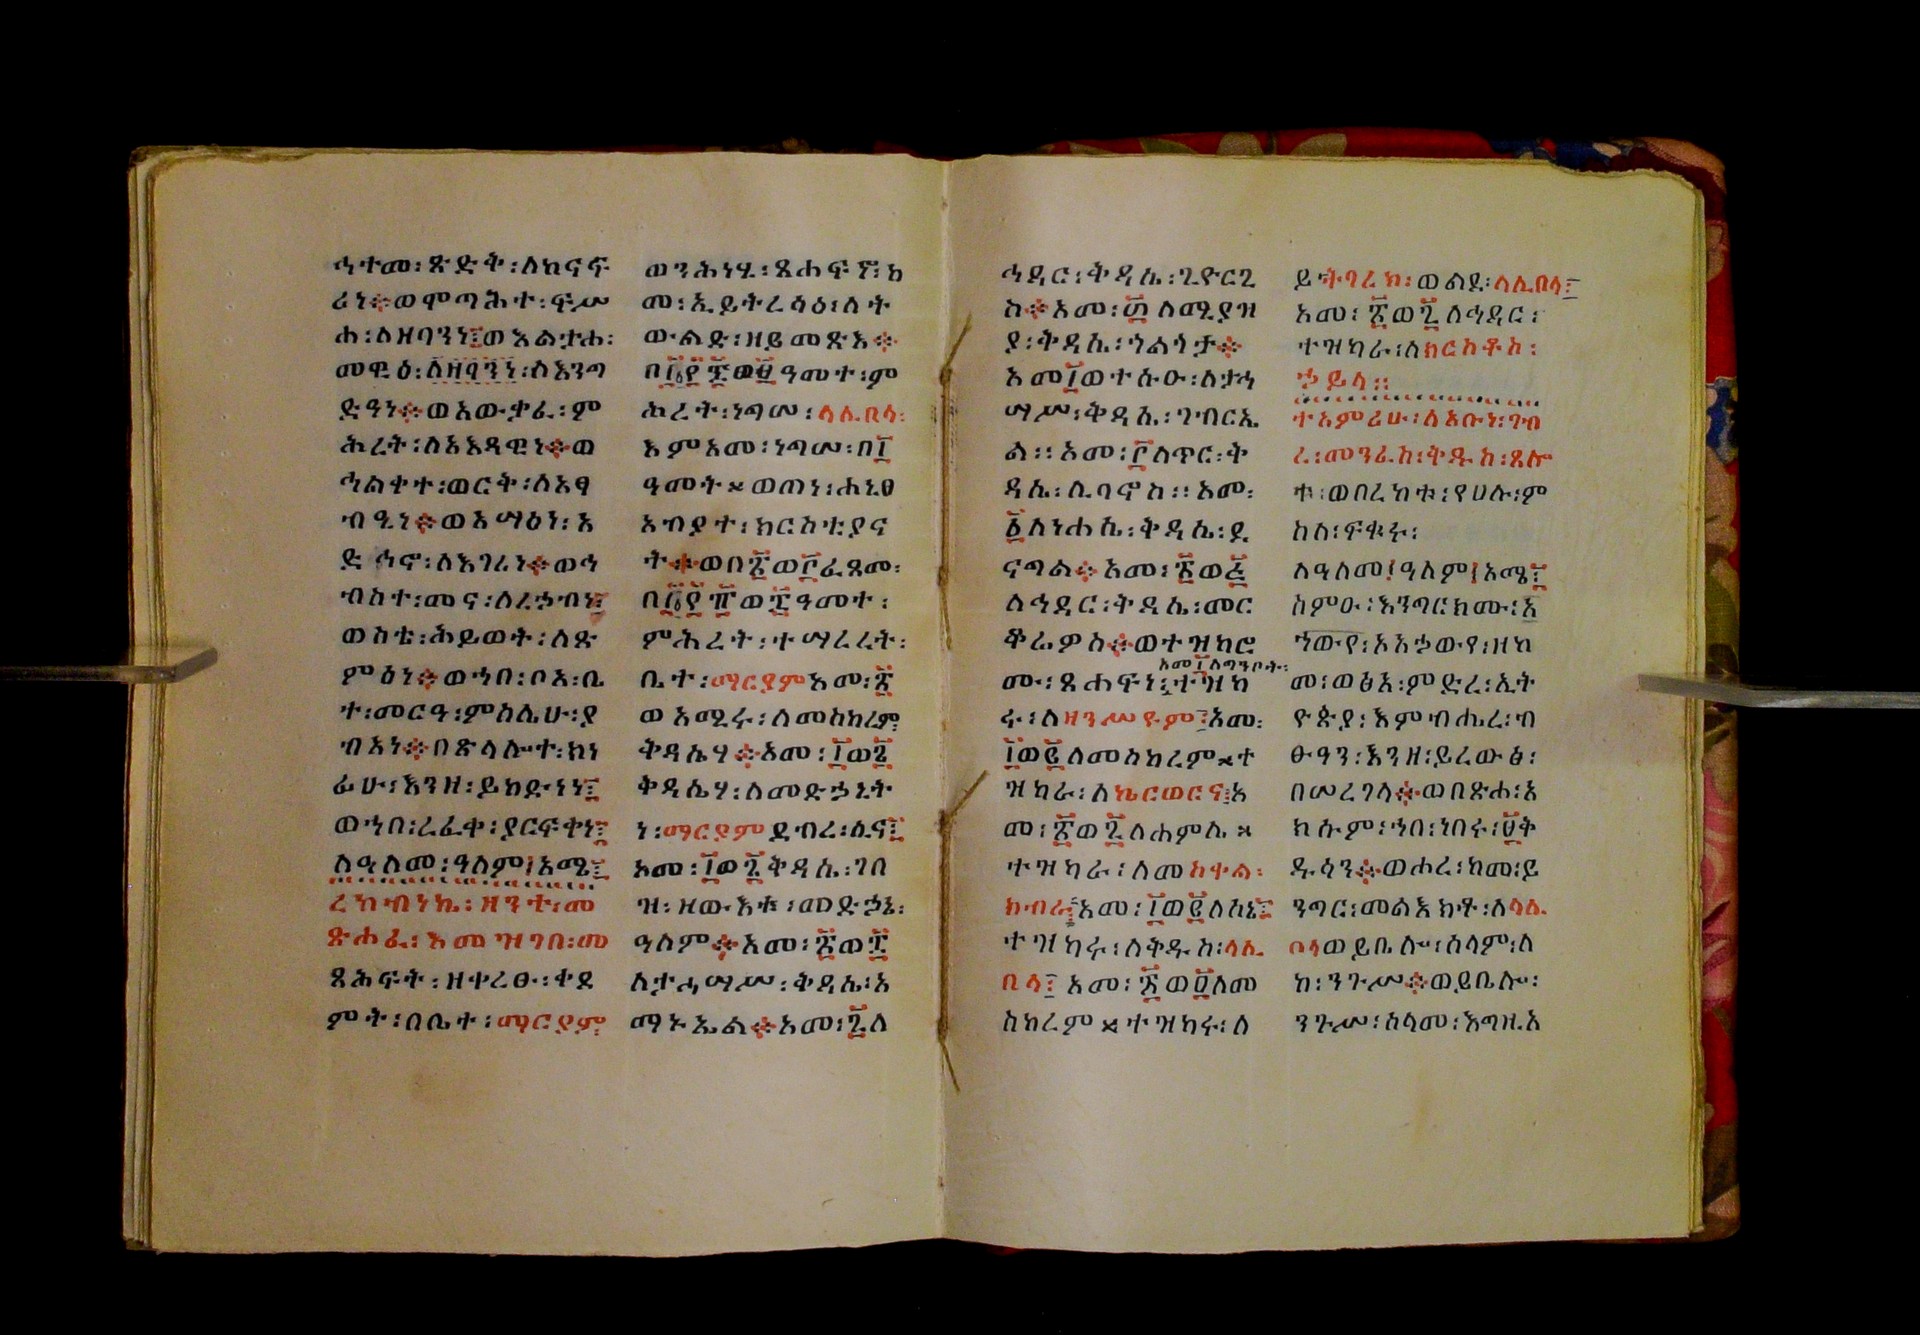 ኅተመ፡ጽድቅ፡ለከናፍ
ሪነ፨ወሞጣሕተ፡ፍሥ
ሐ፡ለዘባንነ፤ወእልታሐ፡
መዊዕ፡ለዘባንነ፡ለእንግ
ድዓነ፨ወአውቃፈ፡ም
ሕረት፡ለአእዳዊነ፨ወ
ኅልቀተ፡ወርቅ፡ለአፃ
ብዒነ፨ወአሣዕነ፡አ
ድኅኖ፡ለእገሪነ፨ወኅ
ብስተ፡መና፡ለረኃብነ፤
ወስቴ፡ሕይወት፡ለጽ
ምዕነ፨ወኀበ፡ቦአ፡ቤ
ተ፡መርዓ፡ምስሌሁ፡ያ
ብአነ፨በጽላሎተ፡ክነ
ፊሁ፡እንዘ፡ይከድነነ፤
ወኀበ፡ረፈቀ፡ያርፍቀነ፤
ለዓለመ፡ዓለም፡አሜ፤
ረከብነኬ፡ዘንተ፡መ
ጽሐፈ፡እመዝገበ፡መ
ጻሕፍት፡ዘቀረፀ፡ቀደ
ምት፡በቤተ፡ማርያም
ወንሕነሂ፡ጸሐፍኖ፡ከ
መ፡ኢይትረሳዕ፡ለት
ውልድ፡ዘይመጽእ፨
በ፲፱፻፶ወ፱ዓመተ፡ም
ሕረት፡ነግሠ፡ላሊበላ፡
እምአመ፡ነግሠ፡በ፲
ዓመት፡ወጠነ፡ሐኒፀ
አብያተ፡ክርስቲያና
ት፨ወበ፳ወ፫ፈጸመ፡
ምሕረት፡ተሣረረት፡
ቤተ፡ማርያምአመ፡፳
ወአሚሩ፡ለመስከረም
ቅዳሴሃ፨አመ፡፲ወ፪
ቅዳሴሃ፡ለመድኃኒት
ነ፡ማርያምደብረ፡ሲና፤
አመ፡፲ወ፯ቅዳሴ፡ገበ
ዝ፡ዘውእቱ፡መድኃኔ፡
ዓለም፨አመ፡፳ወ፰
ለታሕሣሥ፡ቅዳሴ፡አ
ማኑኤል፨አመ፡፯ለ
ኅዳር፡ቅዳሴ፡ጊዮርጊ
ስ፨አመ፡፴ለሚያዝ
ያ፡ቅዳሴ፡ጎልጎታ፨
አመ፲ወተሱዑ፡ለታኅ
ሣሥ፡ቅዳሴ፡ገብርኤ
ል፡፡አመ፡፫ለጥር፡ቅ
ዳሴ፡ሊባኖስ፡፡አመ፡
፩ለነሐሴ፡ቅዳሴ፡ደ
ናግል፨አመ፡፳ወ፭
ለኅዳር፡ቅዳሴ፡መር
ቆሬዎስ፨ወተዝከሮ
ሙ፡ጸሐፍነ፤ተዝከ
ሩ፡ለዘንሥዩም፤አመ፡
፲ወ፩ለመስከረም፡ተ
ዝካራ፡ለኬርወርና፤አ
መ፡፳ወ፯ለሐምሌ፡
ተዝካራ፡ለመስቀል፡
ክብራ፤አመ፡፲ወ፩ለሰኔ፤
ተዝካሩ፡ለቅዱስ፡ላሊ
በላ፤አመ፡፳ወ፬ለመ
ስከረም፡ተዝካሩ፡ለ
ይትባረክ፡ወልደ፡ላሊበላ፤
አመ፡፳ወ፯ለኅዳር፡
ተዝካራ፡ለክርስቶስ፡
ኃይላ፡፡
ተአምሪሁ፡ለአቡነ፡ገብ
ረ፡መንፈስ፡ቅዱስ፡ጸሎ
ቱ፡ወበረከቱ፡የሀሉ፡ም
ስለ፡ፍቁሩ፡
ለዓለመ፡ዓለም፡አሜ፤
ስምዑ፡እንግርክሙ፡አ
ኀውየ፡አአኃውየ፡ዘከ
መ፡ወፅአ፡ምድረ፡ኢት
ዮጵያ፡እምብሔረ፡ብ
ፁዓን፡እንዘ፡ይረውፅ፡
በሠረገላ፨ወበጽሐ፡አ
ክሱም፡ኀበ፡ነበሩ፡፬ቅ
ዱሳን፨ወሐረ፡ከመ፡ይ
ንግር፡መልእክቶ፡ለላሊ
በላወይቤሎ፡ሰላም፡ለ
ከ፡ንጉሥ፨ወይቤሎ፡
ንጉሥ፡ሰላመ፡እግዚአ